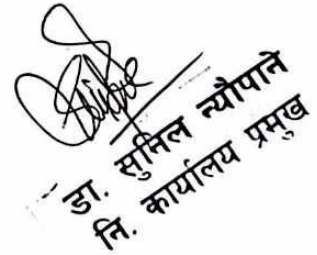 डा. सुनिल न्यौपाने
नि. कार्यालय प्रमुख